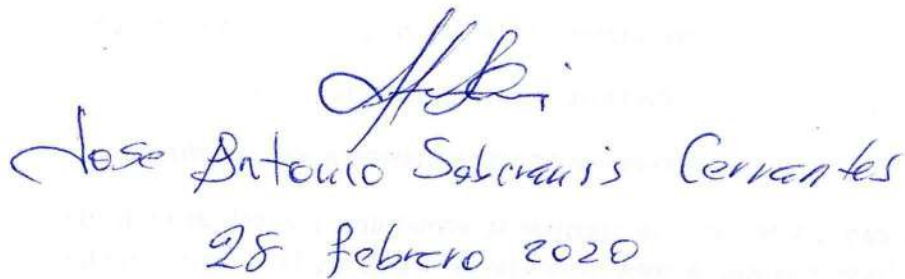 Jose Antonio Soberanis Cervantes
28 febrero 2020